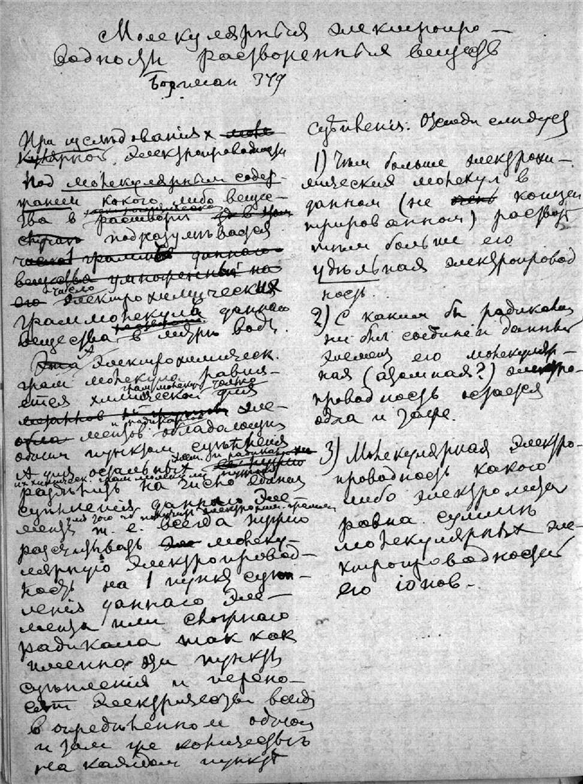 Молекулярныя электропро-
водности растворенныя веществ
Боргман 349
При изслѣдованіях моле
кулярной электропроводности
Под молекулярным содер-
жанием какого либо веще-
ства в растворѣ
подразумѣвается
число граммов даннаго
вещества умноженный на
его число электрохимических
грам молекула даннаго
вещества в литрѣ воды.
Электрохимическ.
грам молекула равня-
ется химической для
эле-
мента обладающих
одним пунктом сцѣпленія
А для остальных
раздѣлить на число единиц
сцѣпленія даннаго эле-
мента т. е. всегда нужно
разсчитывать молеку-
лярную электропровод-
ность на 1 пункт сцѣп-
ленія даннаго эле-
мента или сложнаго
радикала так как
именно эти пункты
сцѣпленія и перено-
сят электричество всегда
в опредѣленном
и там где
на каждом пунктѣ
сцѣпленія. Отсюда слѣдует
1) Чѣм больше электрохи-
мических молекул в
данном (не концен
трированном) растворѣ
тѣм больше его
удѣльная электропровод
ность.
2) С каким бы радикалом
ни был соединен данный
элемент его молекуляр-
ная (атомная?) электро-
проводность остается
одна и таже.
3) Молекулярная электро-
проводность какого
либо электролита
равна суммѣ
молекулярных эле-
ктропроводностей
его іонов.